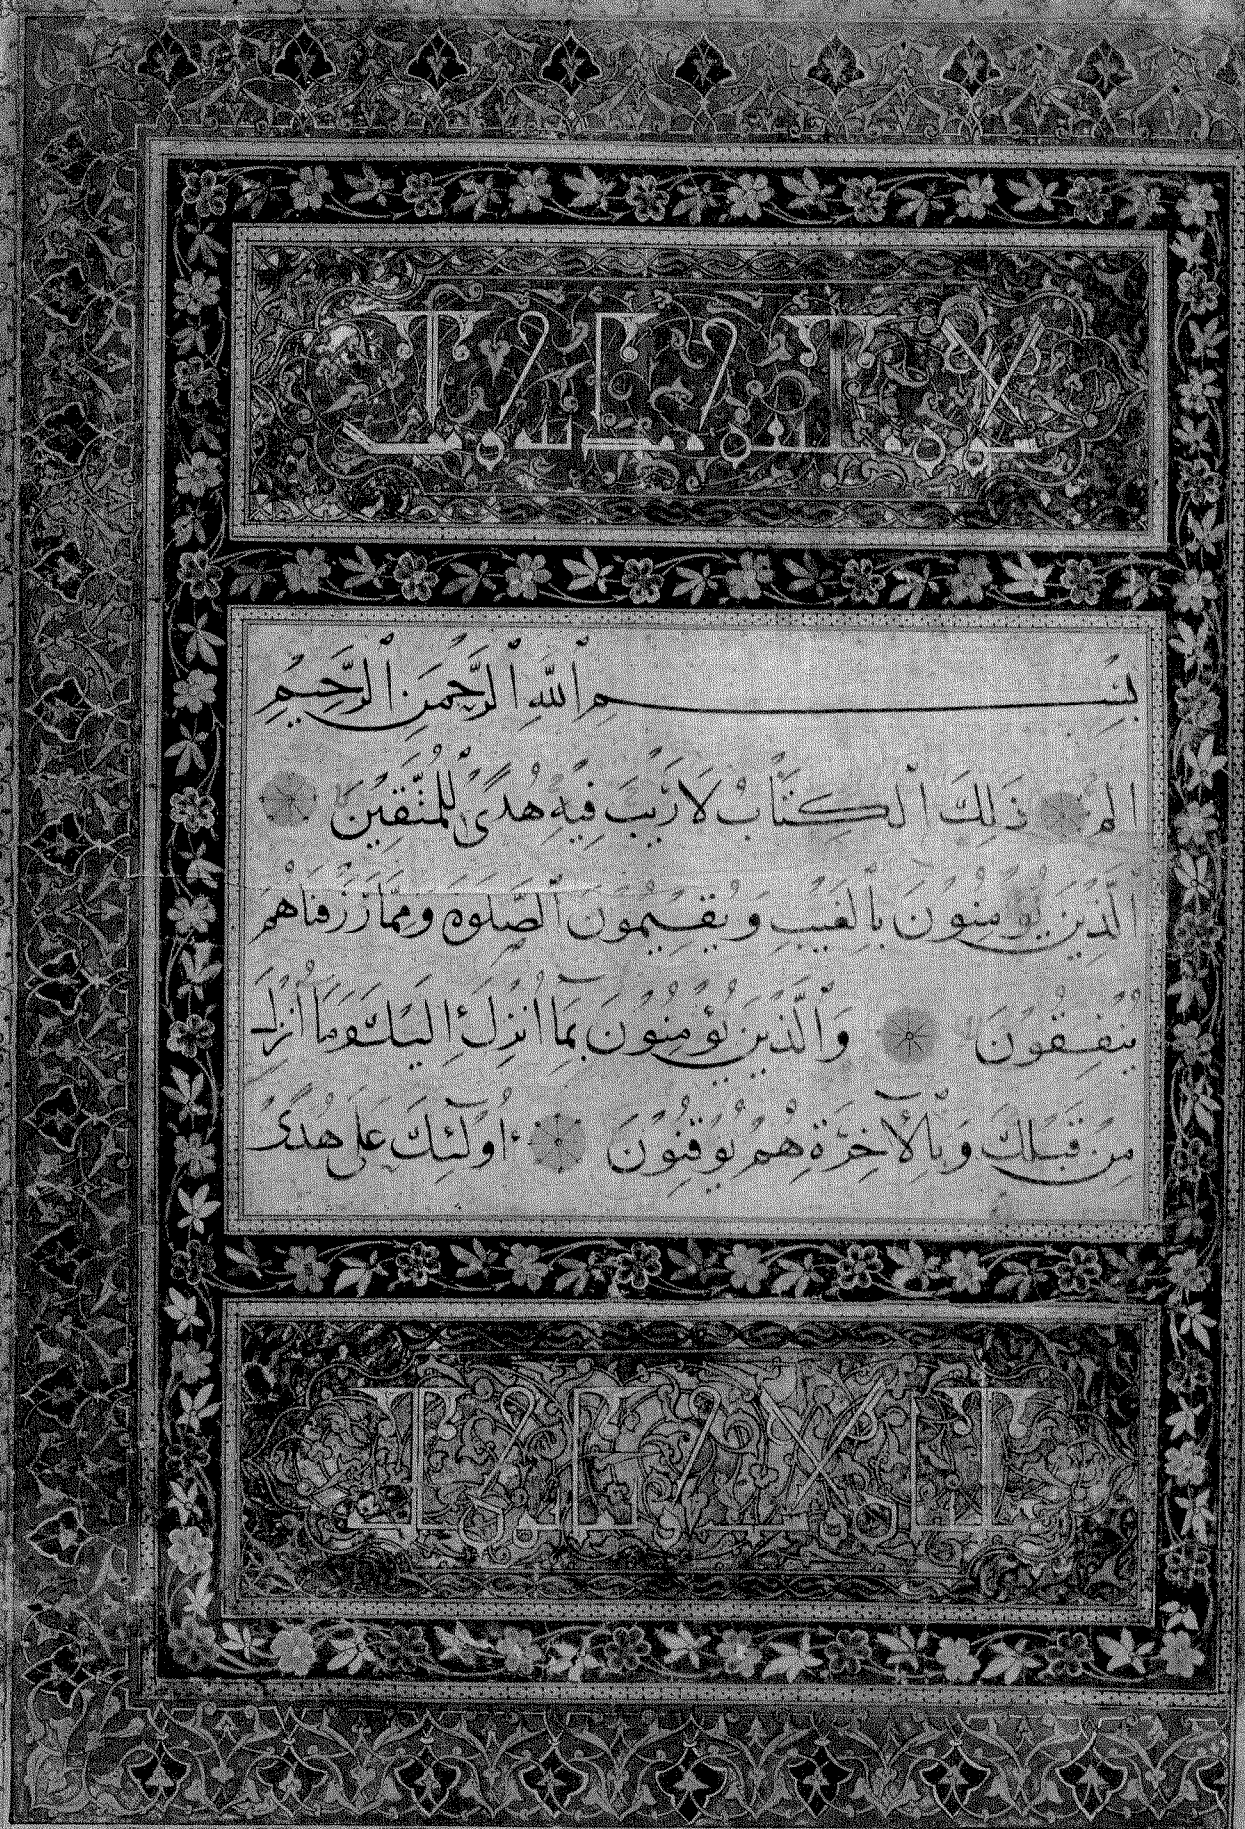 بِسْمِ ٱللَّهِ ٱلرَّحْمَنِ ٱلرَّحِيمِ
الم ذَلِكَ ٱلْكِتَابُ لَا رَيْبَ فِيهِ هُدًى لِلْمُتَّقِينَ
ٱلَّذِينَ يُؤْمِنُونَ بِٱلْغَيْبِ وَيُقِيمُونَ ٱلصَّلَوةَ وَمِمَّا رَزَقْنَاهُمْ
يُنْفِقُونَ وَٱلَّذِينَ يُؤْمِنُونَ بِمَا أُنْزِلَ إِلَيْكَ وَمَا أُنْزِلَ
مِنْ قَبْلِكَ وَبِٱلْآخِرَةِ هُمْ يُوقِنُونَ أُولَئِكَ عَلَى هُدًى